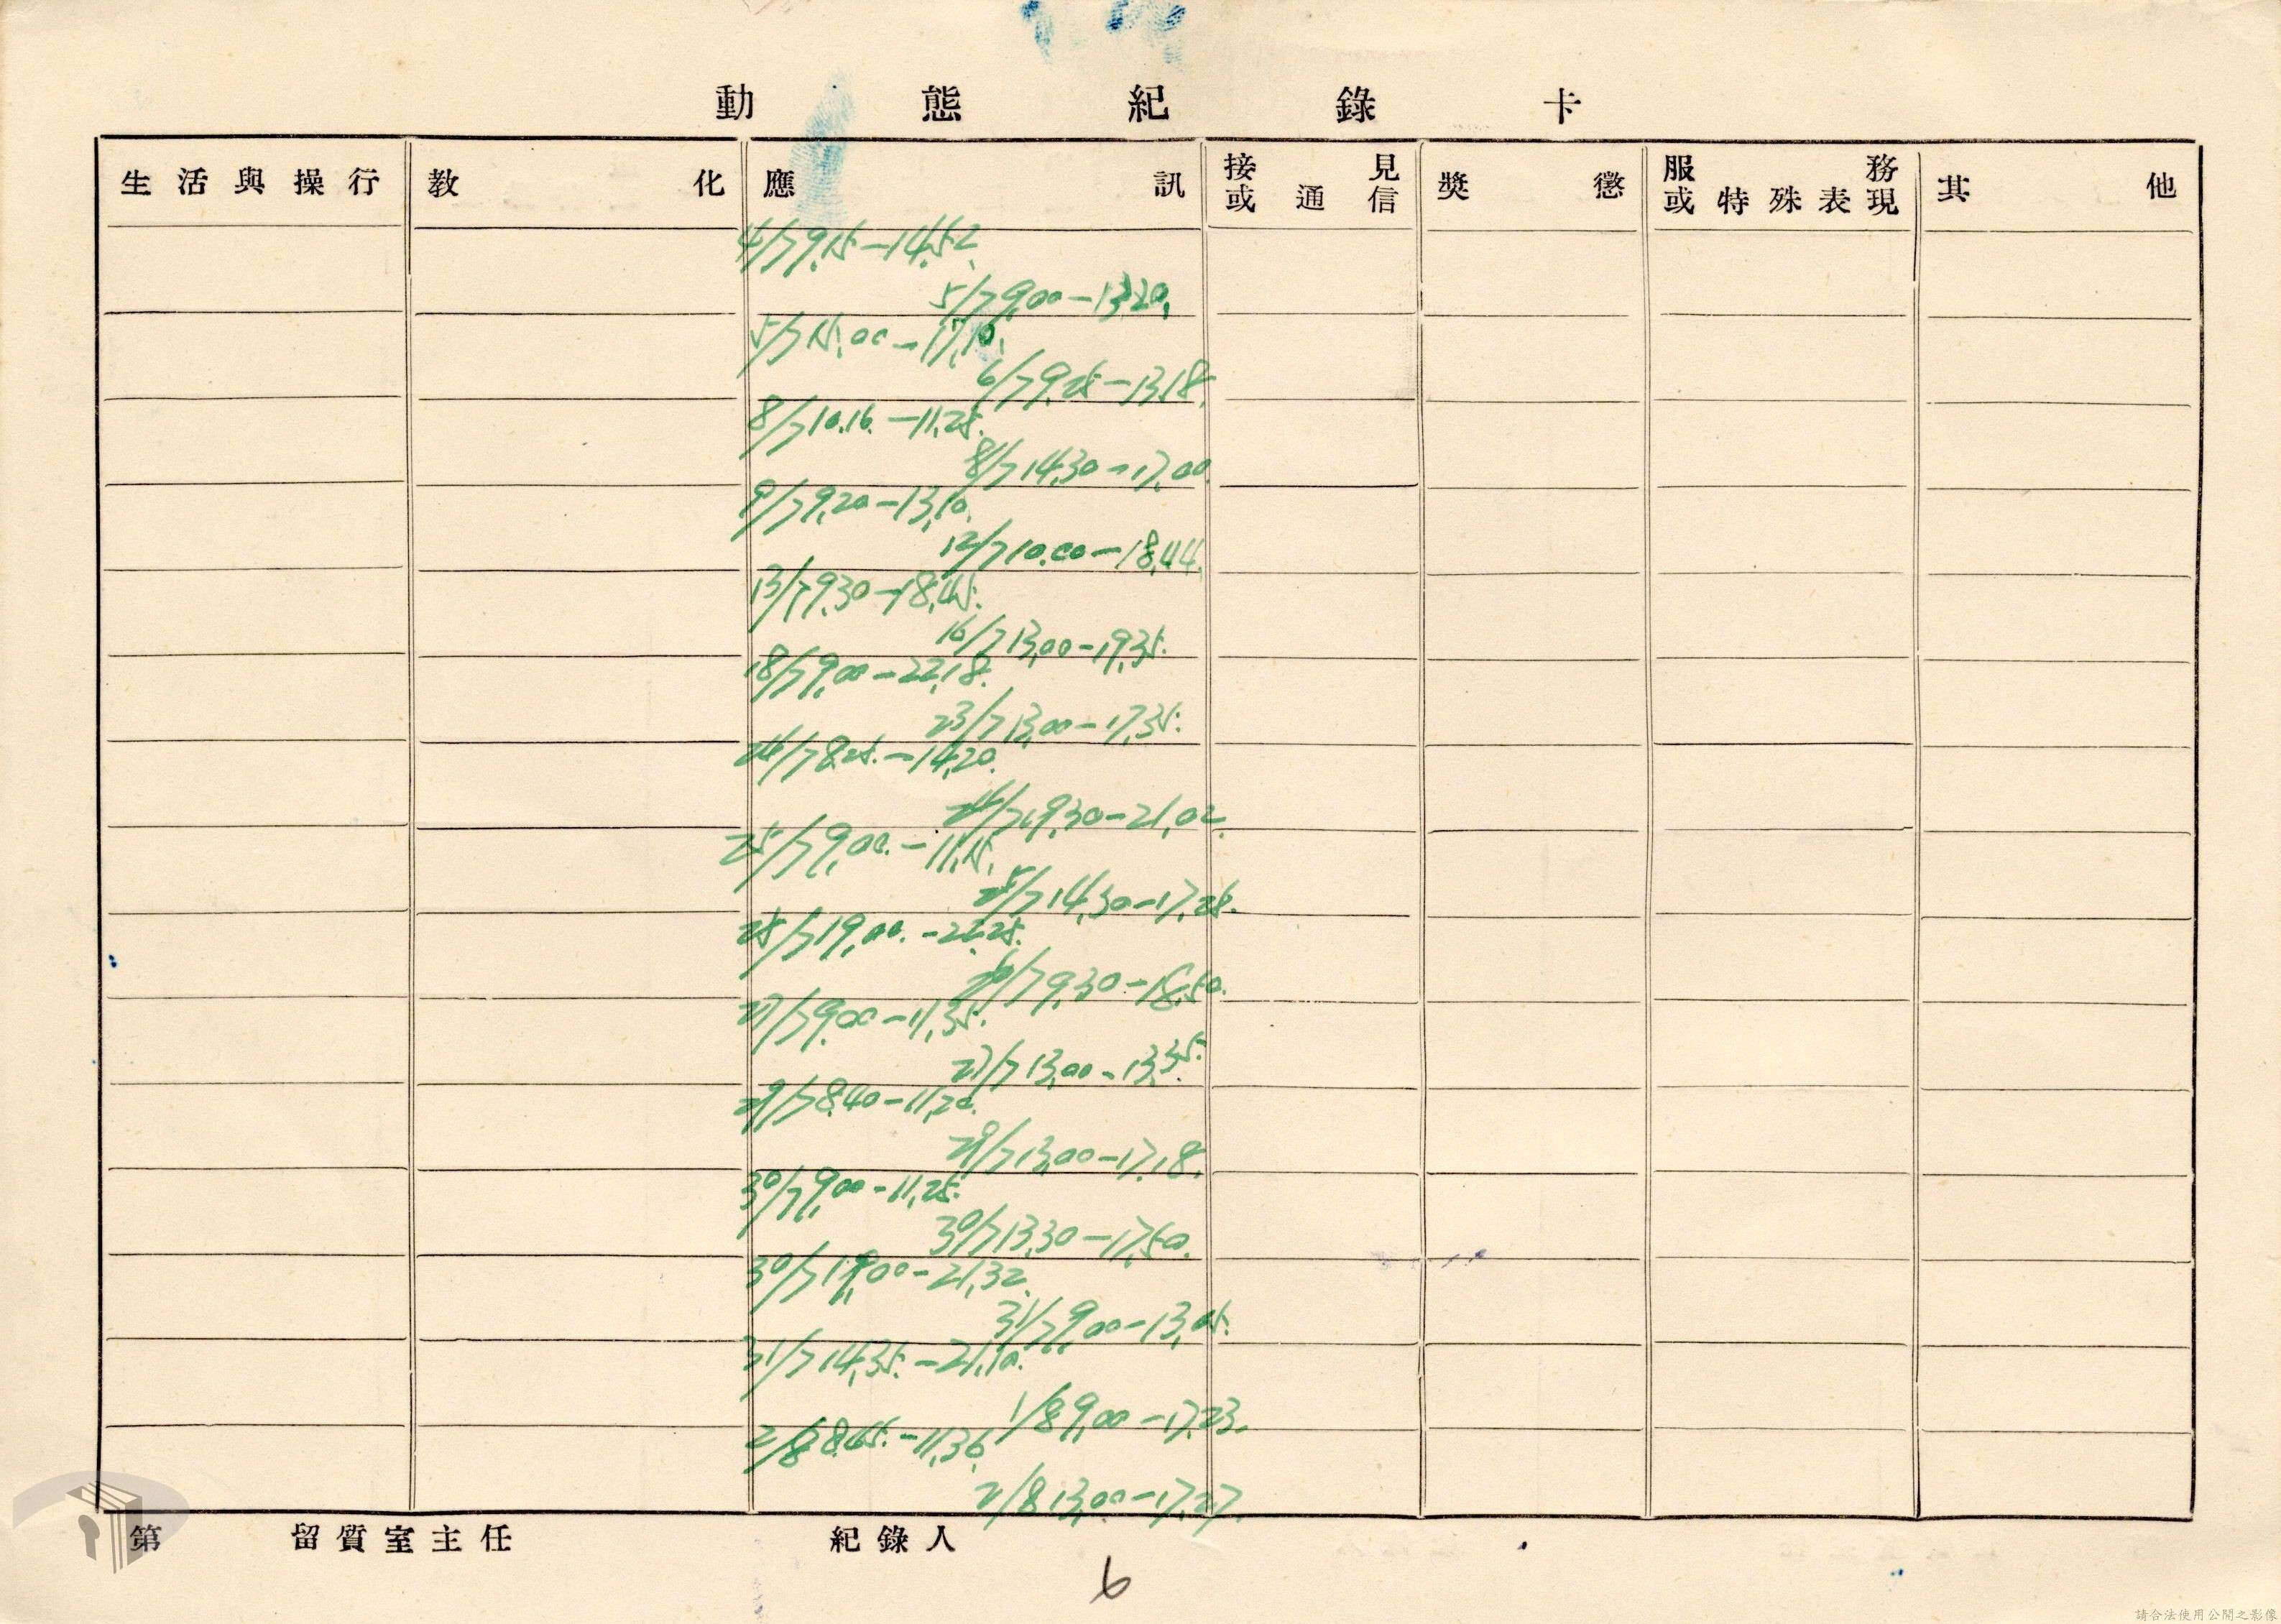 動態紀錄卡
生活與操行 教化 應訊 接見或通信 獎懲 服務或特殊表現 其他
4/7 9,15-14,52.
5/7 9,00-13,20.
5/7 15,00-17,10.
6/7 9,25-13,18.
8/7 10.16.-11,25.
8/7 14,30-17,00.
9/7 9,20-13,10.
12/7 10.00-18,44.
13/7 9,30-18,45.
16/7 13,00-19,35.
18/7 9,00-22,18.
23/7 13,00-17,35.
24/7 8,25.-14,20.
24/7 19,30-21,02.
25/7 9,00.-11,15.
25/7 14,30-17,28.
25/7 19,00.-22,25.
26/7 9,30-18,50.
27/7 9,00-11,35.
27/7 13,00-13,35.
29/7 8,40-11,20.
29/7 13,00-17,18.
30/7 9,00-11,25.
30/7 13,30-17,50.
30/7 19,00-21,32.
31/7 9,00-13,05.
31/7 14,35.-21,10.
1/8 9,00-17,23.
2/8 8,45.-11,36.
2/8 13,00-17,27.
第 留質室主任 紀錄人
6
請合法使用公開之影像